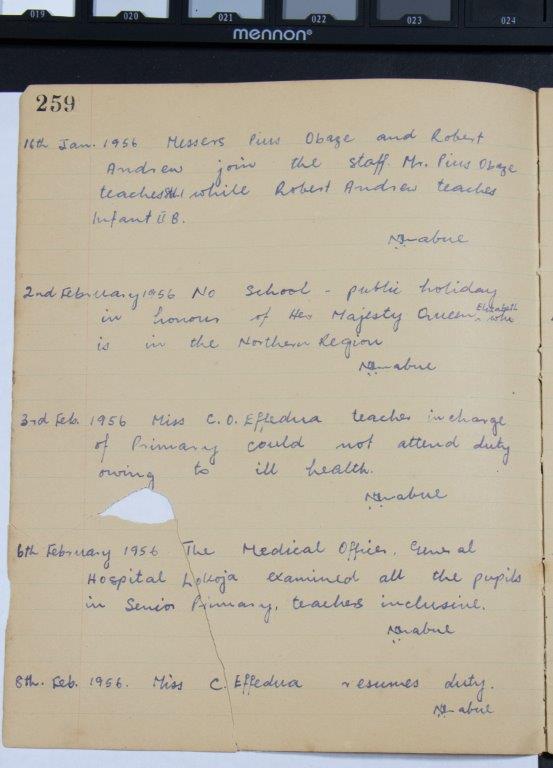 019 020 021 022 023 024
mennon®
259
16th Jan. 1956 Messers Pius Obaze and Robert
Andrew join the staff. Mr. Pius Obaze
teaches while Robert Andrew teaches
Infant II B.
2nd February 1956 No school - public holiday
in honour of Her Majesty Queen Elizabeth who
is in the Northern Region
3rd Feb. 1956 Miss C. O. Effedua teacher incharge
of Primary could not attend duty
owing to ill health.
6th February 1956 The Medical Officer, General
Hospital Lokoja examined all the pupils
in Senior Primary, teachers inclusive.
8th. Feb. 1956. Miss C. Effedua resumes duty.